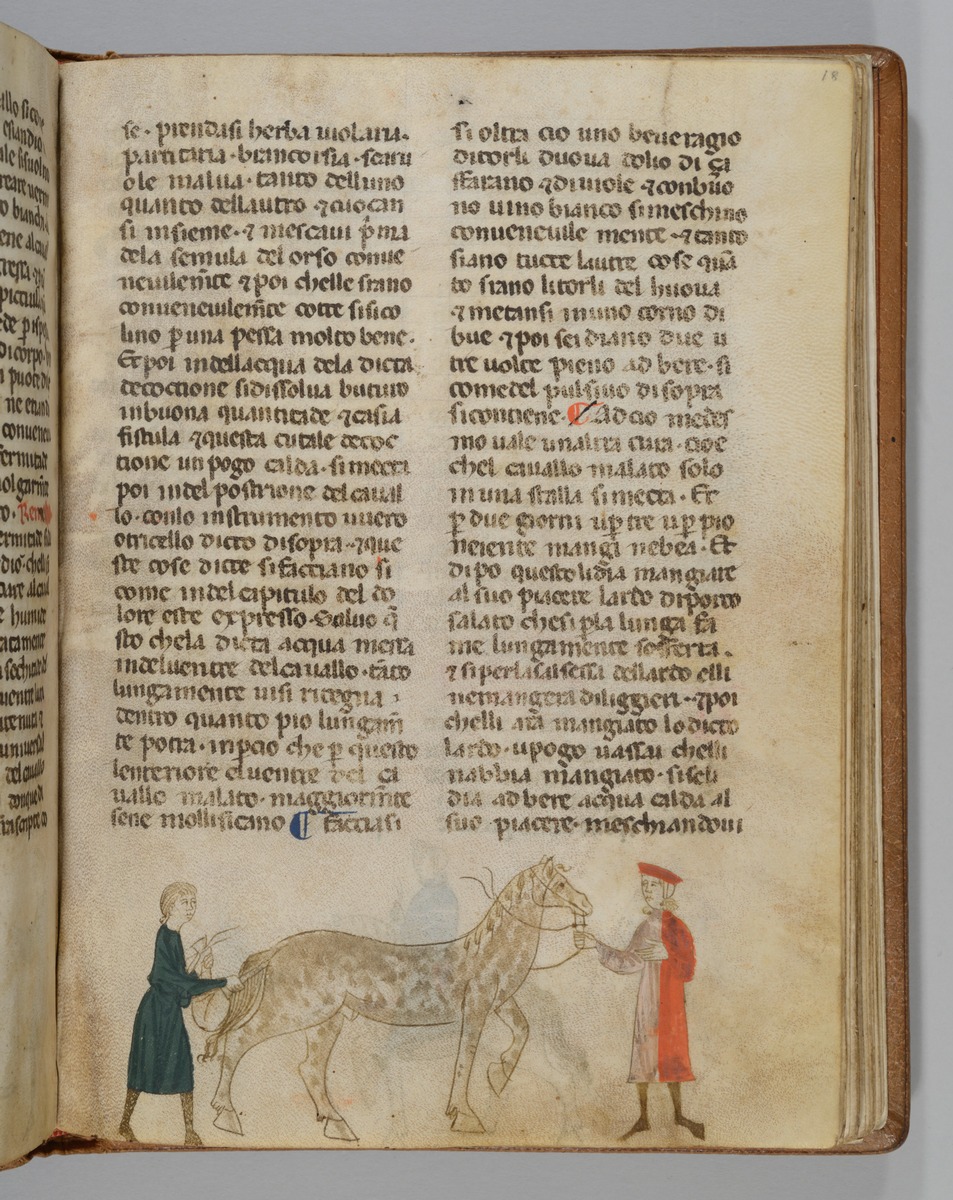 18
se· prendasi herba uiolaria·
paritaria· branco rsia· senu
ole malua· tanto delluno
quanto dellautro ⁊ cuocan
si insieme· ⁊ mescaui p̃ ma
dela semula del orso conue
neuilem̃te ⁊ poi chelle siano
conueneuilem̃te cotte si si co
lino p̱ una pessa molto bene·
Et poi indellacqua dela dicta
decoctione si dissolua buturo
in buona quantitade ⁊ casia
fistula ⁊ questa cutale decoc
tione un pogo calda· si mecta
poi indel postrione del caual
lo· conlo instrumento uuero
otricello dicto di sopra ·⁊ que
ste cose dicte si facciano si
come indel capitulo del do
lore este expresso· Saluo q̃
sto che la dicta acqua messa
indeluentre delcauallo· tãto
lungamente ui si ritegna
dentro quanto pio lungam̃
te potra· inp̱cio che p̱ questo
lenteriore eluentre del ca
uallo malato· maggiorm̃te
sene mollificano ¶ facciasi
si oltra cio uno beueragio
ditorli duoua dolio di ça
ffarano ⁊ di uiole ⁊ con buo
no uino bianco si meschino
conueneuile mente ·⁊ tanto
siano tucte lautre cose quã
to siano li torli del huoua
⁊ metansi in uno corno di
bue ⁊ poi sei diano due u
tre uolte pieno ad bere· si
come del pulsiuo di sopra
si contiene· ¶ Ad cio medes
mo uale unaltra cura· cioe
chel cauallo malato solo
in una stalla si mecta· Et
p̱ due giorni u p̱ tre u p̱ pio
neiente mangi ne bea· Et
dipo questo li dia mangiare
al suo piacere lardo di porco
salato che si p̱ la lunga fa
me lungamente sofferta·
⁊ si per la salsessa dellardo elli
ne mangera diliggieri ·⁊ poi
chelli ara mangiato lo dicto
lardo· u pogo u assai chelli
nabbia mangiato· si seli
dia ad bere acqua calda al
suo piacere· meschiandoui